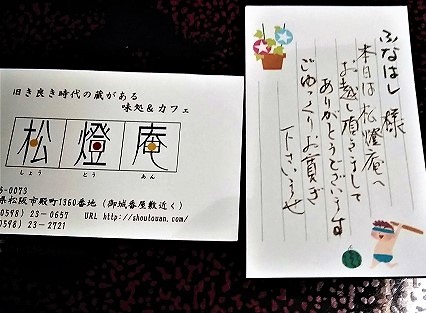 旧き良き時代の蔵がある
味処&カフェ
松燈庵
しょう とう あん
5-0073
県松阪市殿町1360番地(御城番屋敷近く)
(0598) 23-0657 URL http://shoutouan.com/
(0598) 23-2721
ふなはし 様
本日は松燈庵へ
お越し頂きまして
ありがとうございます
ごゆっくりお寛ぎ
下さいませ